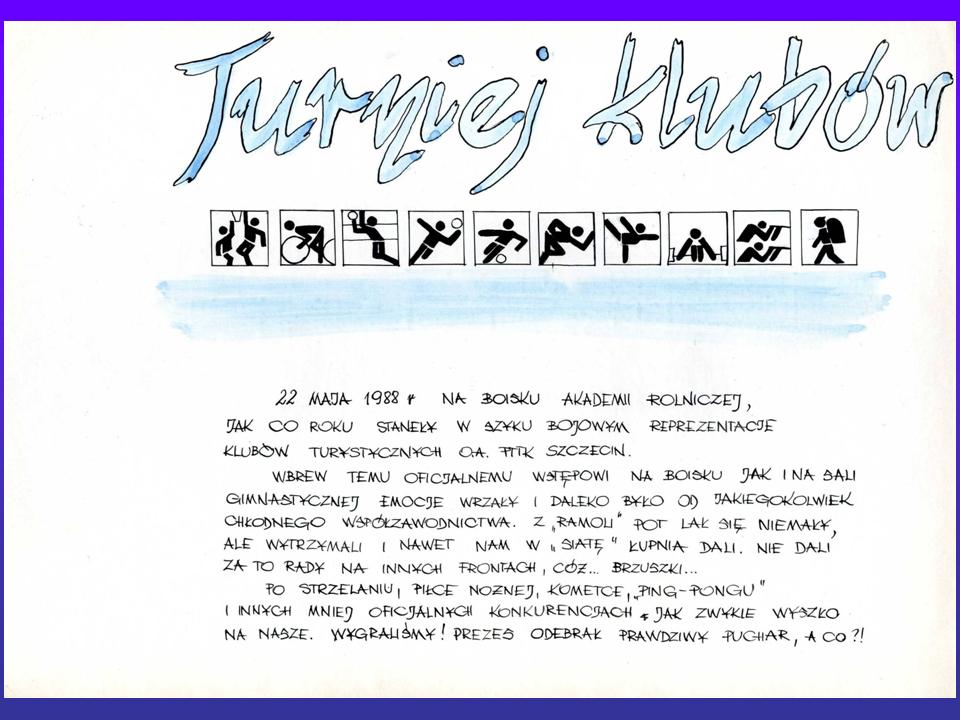 Turniej klubów
22 MAJA 1988 r NA BOISKU AKADEMII ROLNICZEJ,
JAK CO ROKU STANEŁY W SZYKU BOJOWYM REPREZENTACJE
KLUBÓW TURYSTYCZNYCH O.A. PTTK SZCZECIN.
WBREW TEMU OFICJALNEMU WSTĘPOWI NA BOISKU JAK I NA SALI
GIMNASTYCZNEJ EMOCJE WRZAŁY I DALEKO BYŁO OD JAKIEGOKOLWIEK
CHŁODNEGO WSPÓŁZAWODNICTWA. Z „RAMOLI" POT LAŁ SIĘ NIEMAŁY,
ALE WYTRZYMALI I NAWET NAM W „SIATĘ" ŁUPNIA DALI. NIE DALI
ZA TO RADY NA INNYCH FRONTACH, CÓŻ... BRZUSZKI...
PO STRZELANIU, PIŁCE NOŻNEJ, KOMETCE, „PING-PONGU"
I INNYCH MNIEJ OFICJALNYCH KONKURENCJACH, JAK ZWYKLE WYSZŁO
NA NASZE. WYGRALIŚMY! PREZES ODEBRAŁ PRAWDZIWY PUCHAR, A CO?!